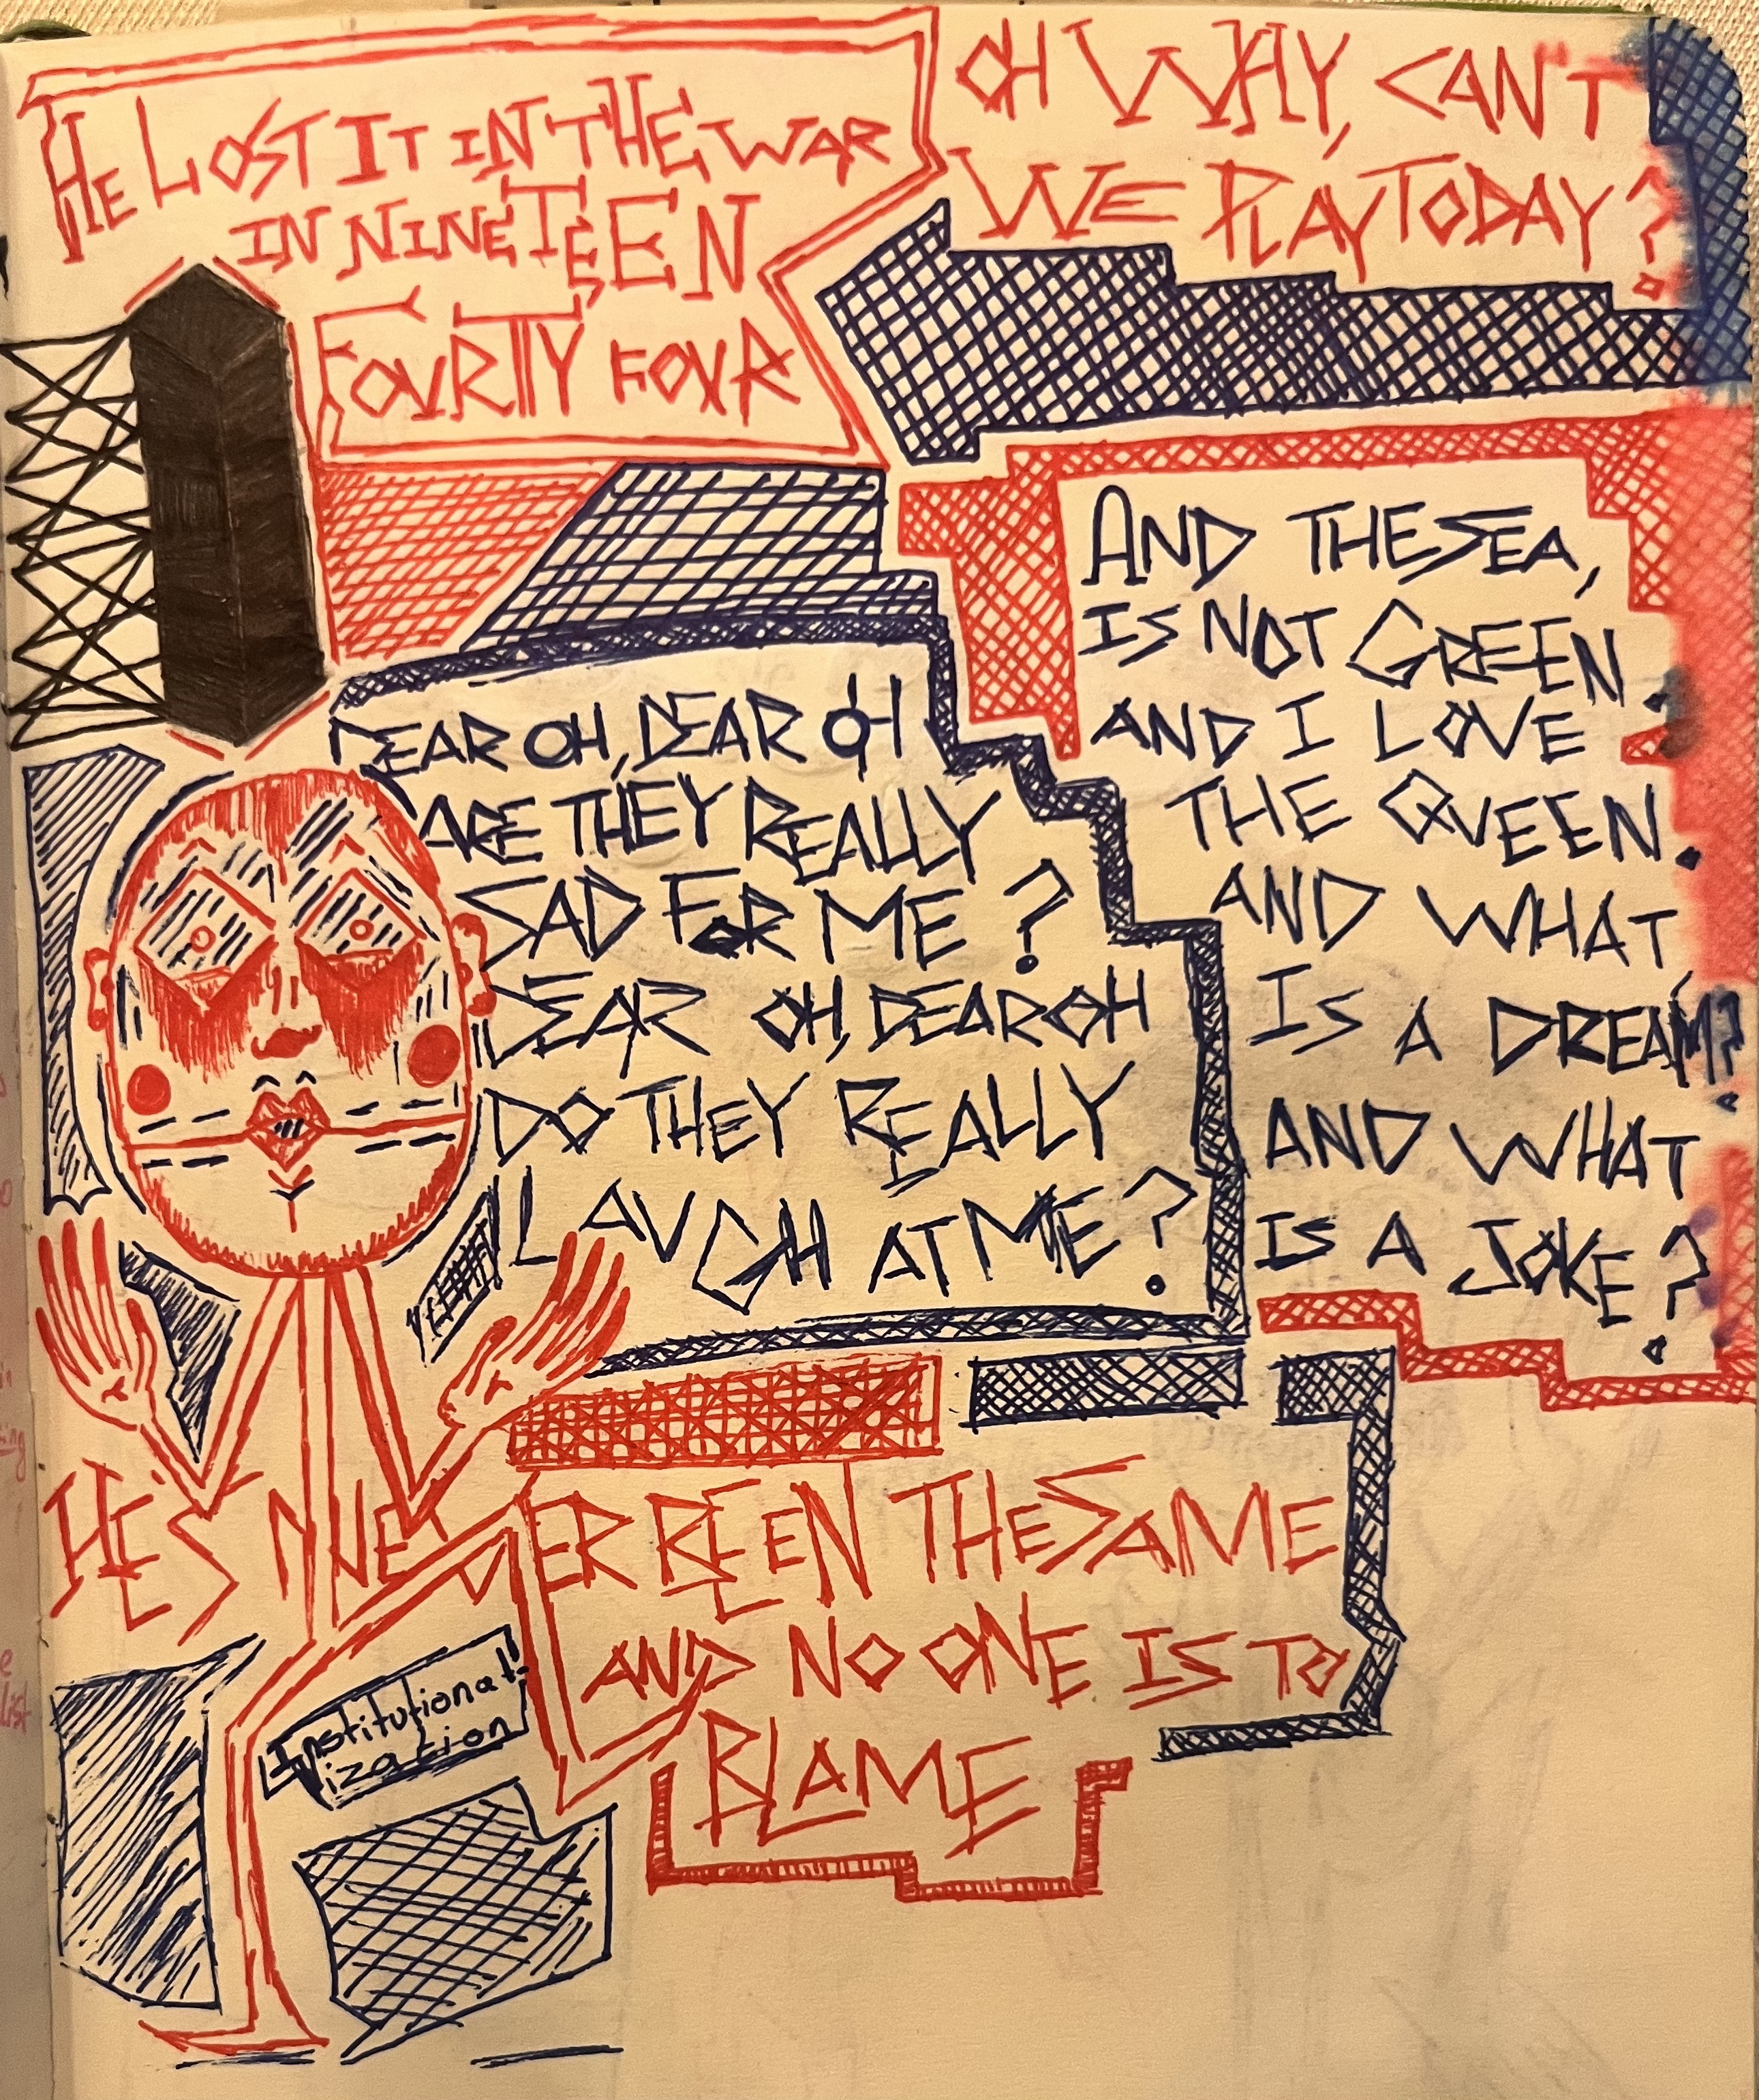 HE LOST IT IN THE WAR
IN NINETEEN
FOURTY FOUR
OH WHY, CAN'T
WE PLAY TODAY?
AND THE SEA,
IS NOT GREEN.
AND I LOVE
THE QUEEN.
AND WHAT,
IS A DREAM?
AND WHAT
IS A JOKE?
DEAR OH, DEAR OH
ARE THEY REALLY
SAD FOR ME?
DEAR OH, DEAR OH
DO THEY REALLY
LAUGH AT ME?
HE'S NEVER BEEN THE SAME
AND NO ONE IS TO
BLAME
Institutional
ization